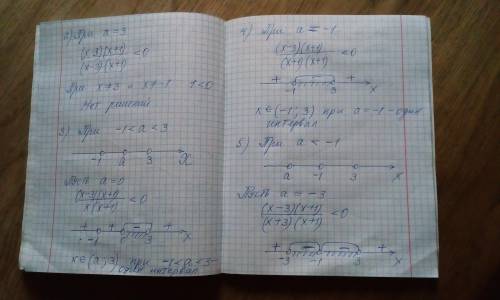 2) При a = 3
(x-3)(x+1)
/ (x-3)(x+1) < 0
При x ≠ 3 и x ≠ -1 1 < 0
Нет решений
3) При -1 < a < 3
-1 a 3 x
Пусть a = 0
(x-3)(x+1)
/ x(x+1) < 0
+ + - +
-1 3 x
x ∈ (a; 3) при -1 < a < 3 -
один интервал
4) При a = -1
(x-3)(x+1)
/ (x+1)(x+1) < 0
+ - +
-1 3 x
x ∈ (-1; 3) при a = -1 - один
интервал
5) При a < -1
a -1 3 x
Пусть a = -3
(x-3)(x+1)
/ (x+3)(x+1) < 0
+ - - +
-3 -1 3 x